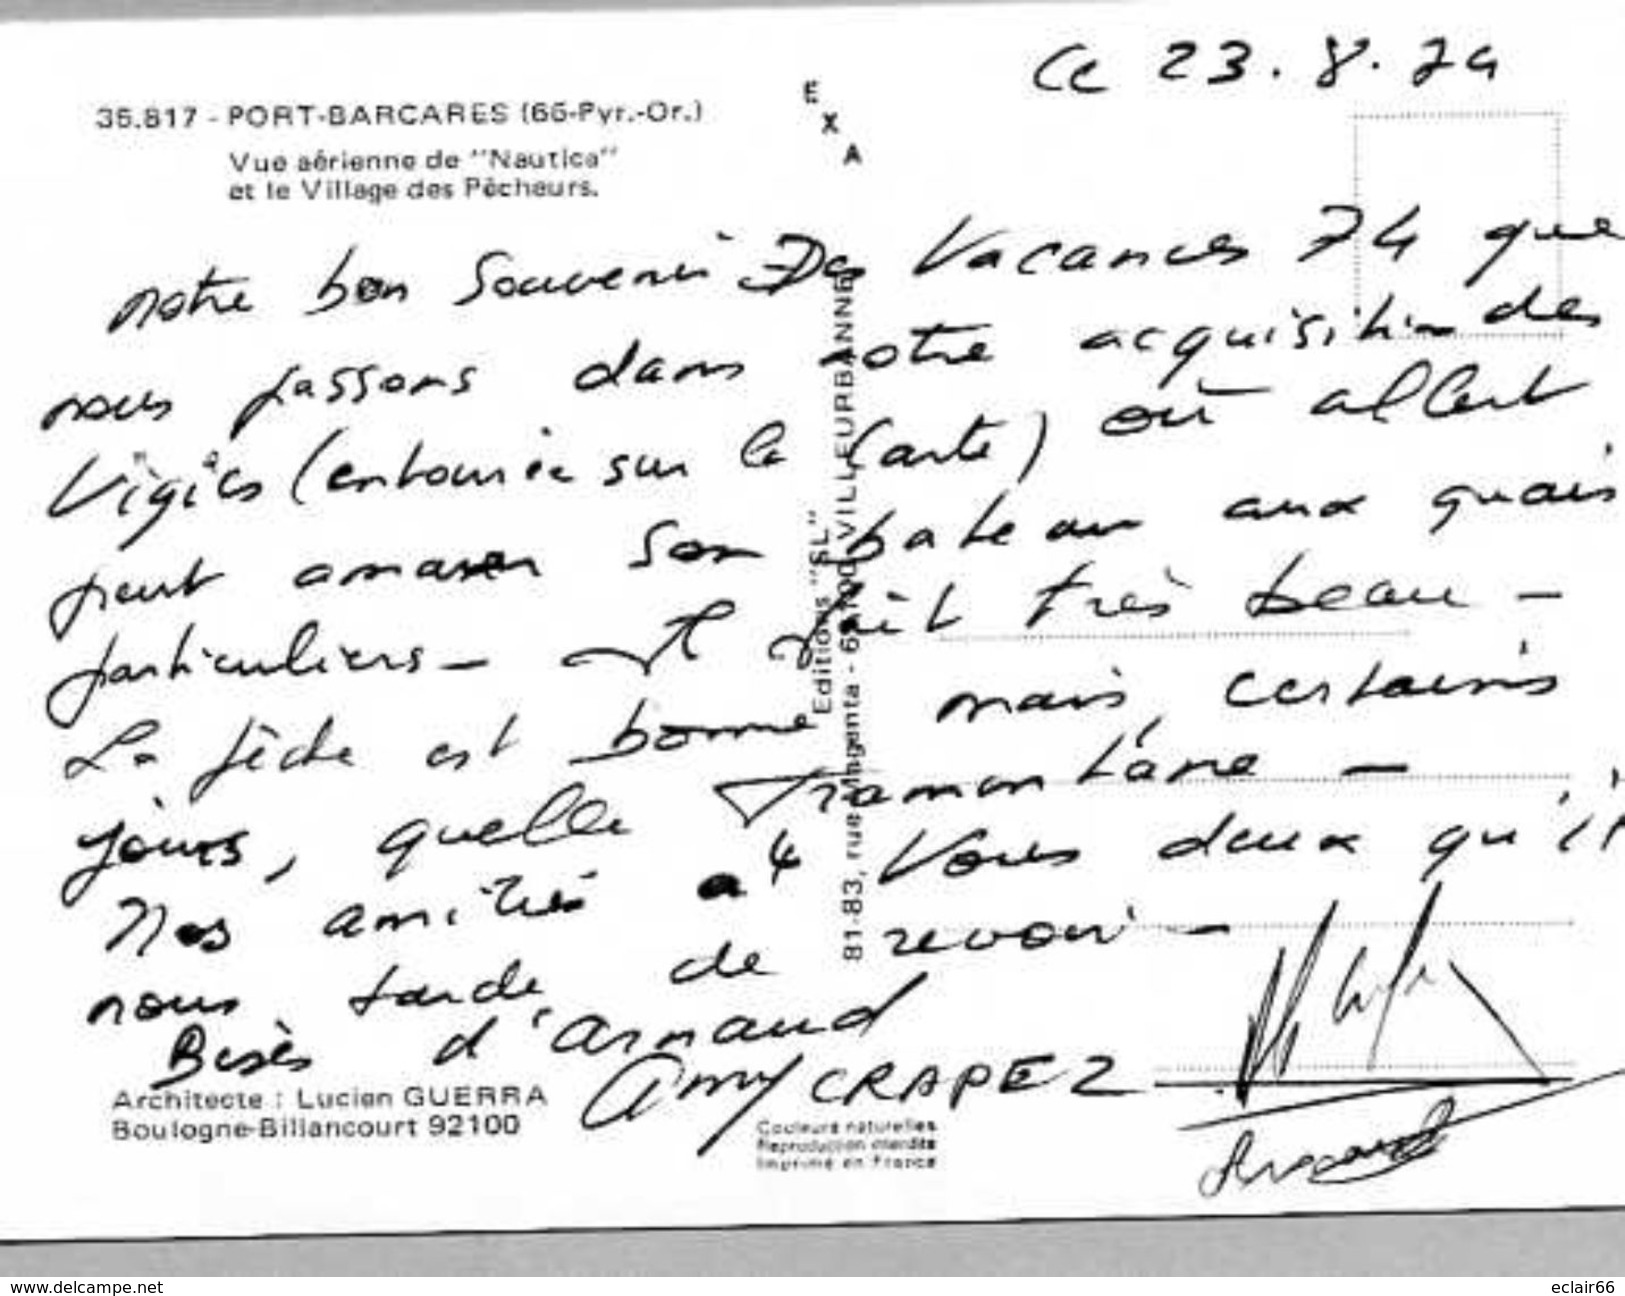 Ce 23.8.74
35.817 - PORT-BARCARES (66-Pyr.-Or.)
Vue aérienne de "Nautica"
et le Village des Pêcheurs.
EXA
notre bon Souvenir Des Vacances 74 que
nous passons dans notre acquisition des
Vigies (entourée sur la Carte) où albert
peut amarrer son bateau aux quais
particuliers - Il fait très beau -
La pêche est bonne mais, certains
jours, quelle Tramontane -
Nos amitiés à Vous deux qu'il
nous tarde de revoir -
Bises d'Arnaud
Amy CRAPEZ
Arnaud
Editions "SL"
81-83, rue Magenta - 69100 VILLEURBANNE
Architecte : Lucien GUERRA
Boulogne-Billancourt 92100
Couleurs naturelles
Reproduction interdite
Imprimé en France
www.delcampe.net
eclair66